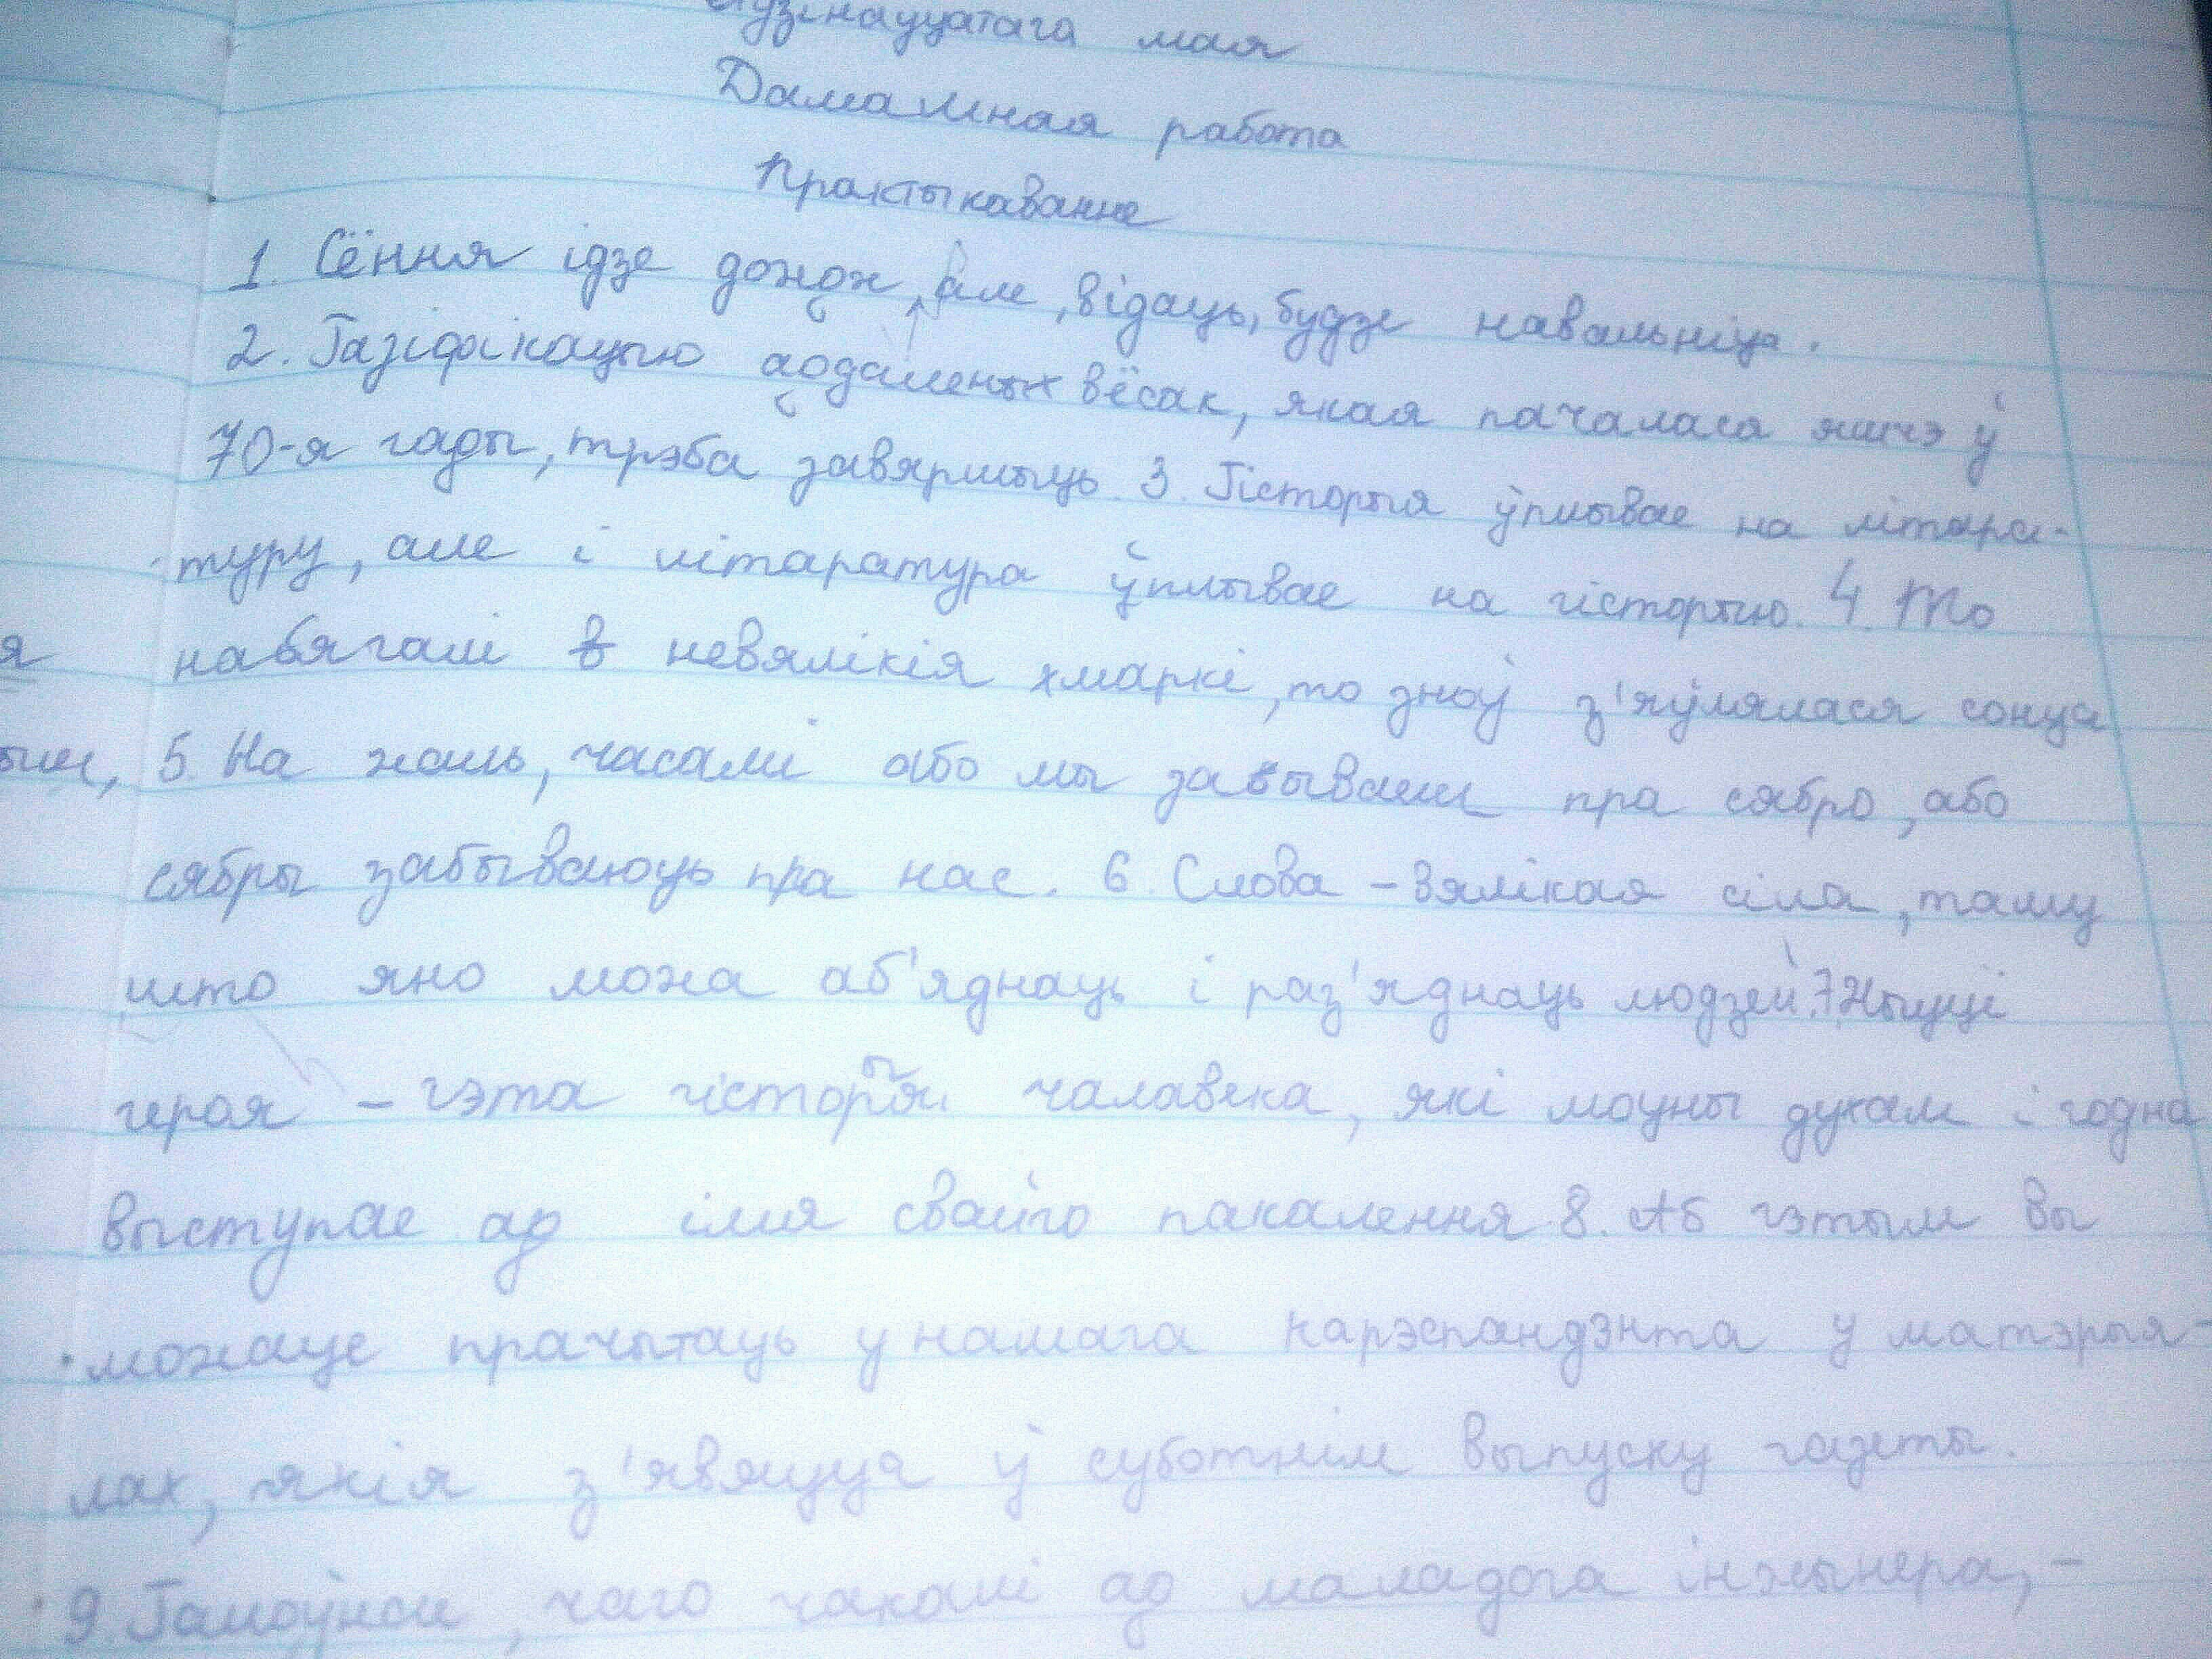 мая
Дамашняя работа
Практыкаванне
1. Сёння ідзе дождж, але, відаць, будзе навальніца.
2. Газіфікацыю аддаленых вёсак, якая пачалася яшчэ ў
70-я гады, трэба завяршыць. 3. Гісторыя ўплывае на літара-
туру, але і літаратура ўплывае на гісторыю. 4. То
набягалі невялікія хмаркі, то зноў з'яўлялася сонца
я
5. На жаль, часамі або мы забываем пра сяброў, або
сябры забываюць пра нас. 6. Слова – вялікая сіла, таму
што яно можа аб'яднаць і раз'яднаць людзей. 7.
героя – гэта гісторыя чалавека, які моцны духам і годна
выступае ад імя свайго пакалення 8. Аб гэтым вы
можаце прачытаць у нашага карэспандэнта у матэрыя-
лах, якія з'явяцца ў суботнім выпуску газеты.
9. Галоўнае, чаго чакалі ад маладога інжынера, –